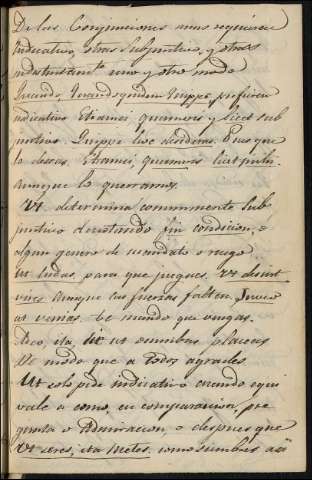 De las Conjunciones unas requieren
indicativo, otras Subjuntivo, y otras
indistintamte. uno y otro modo
Quando, Quandoquidem Quippe, prefieren
indicativo Etiamsi quamvis y licet sub
juntivo. Quippe hoc desideras. Pues que
lo deseas. Etiamsi, quamvis licet
Aunque lo queramos.
Ut determina comunmente Sub
juntivo denotando fin condicion, o
algun genero de mandato o ruego
ut ludas, para que juegues. Ut desint
vires Aunque las fuerzas falten. Jubeo
ut venias. te mando que vengas.
Adeo, ita, sic ut omnibus placeas
De modo que a todos agrades.
Ut solo pide indicativo cuando equi
vale a como, en comparacion, pre
gunta o Admiracion, o despues que
Ut seres, ita metes. como siembres asi